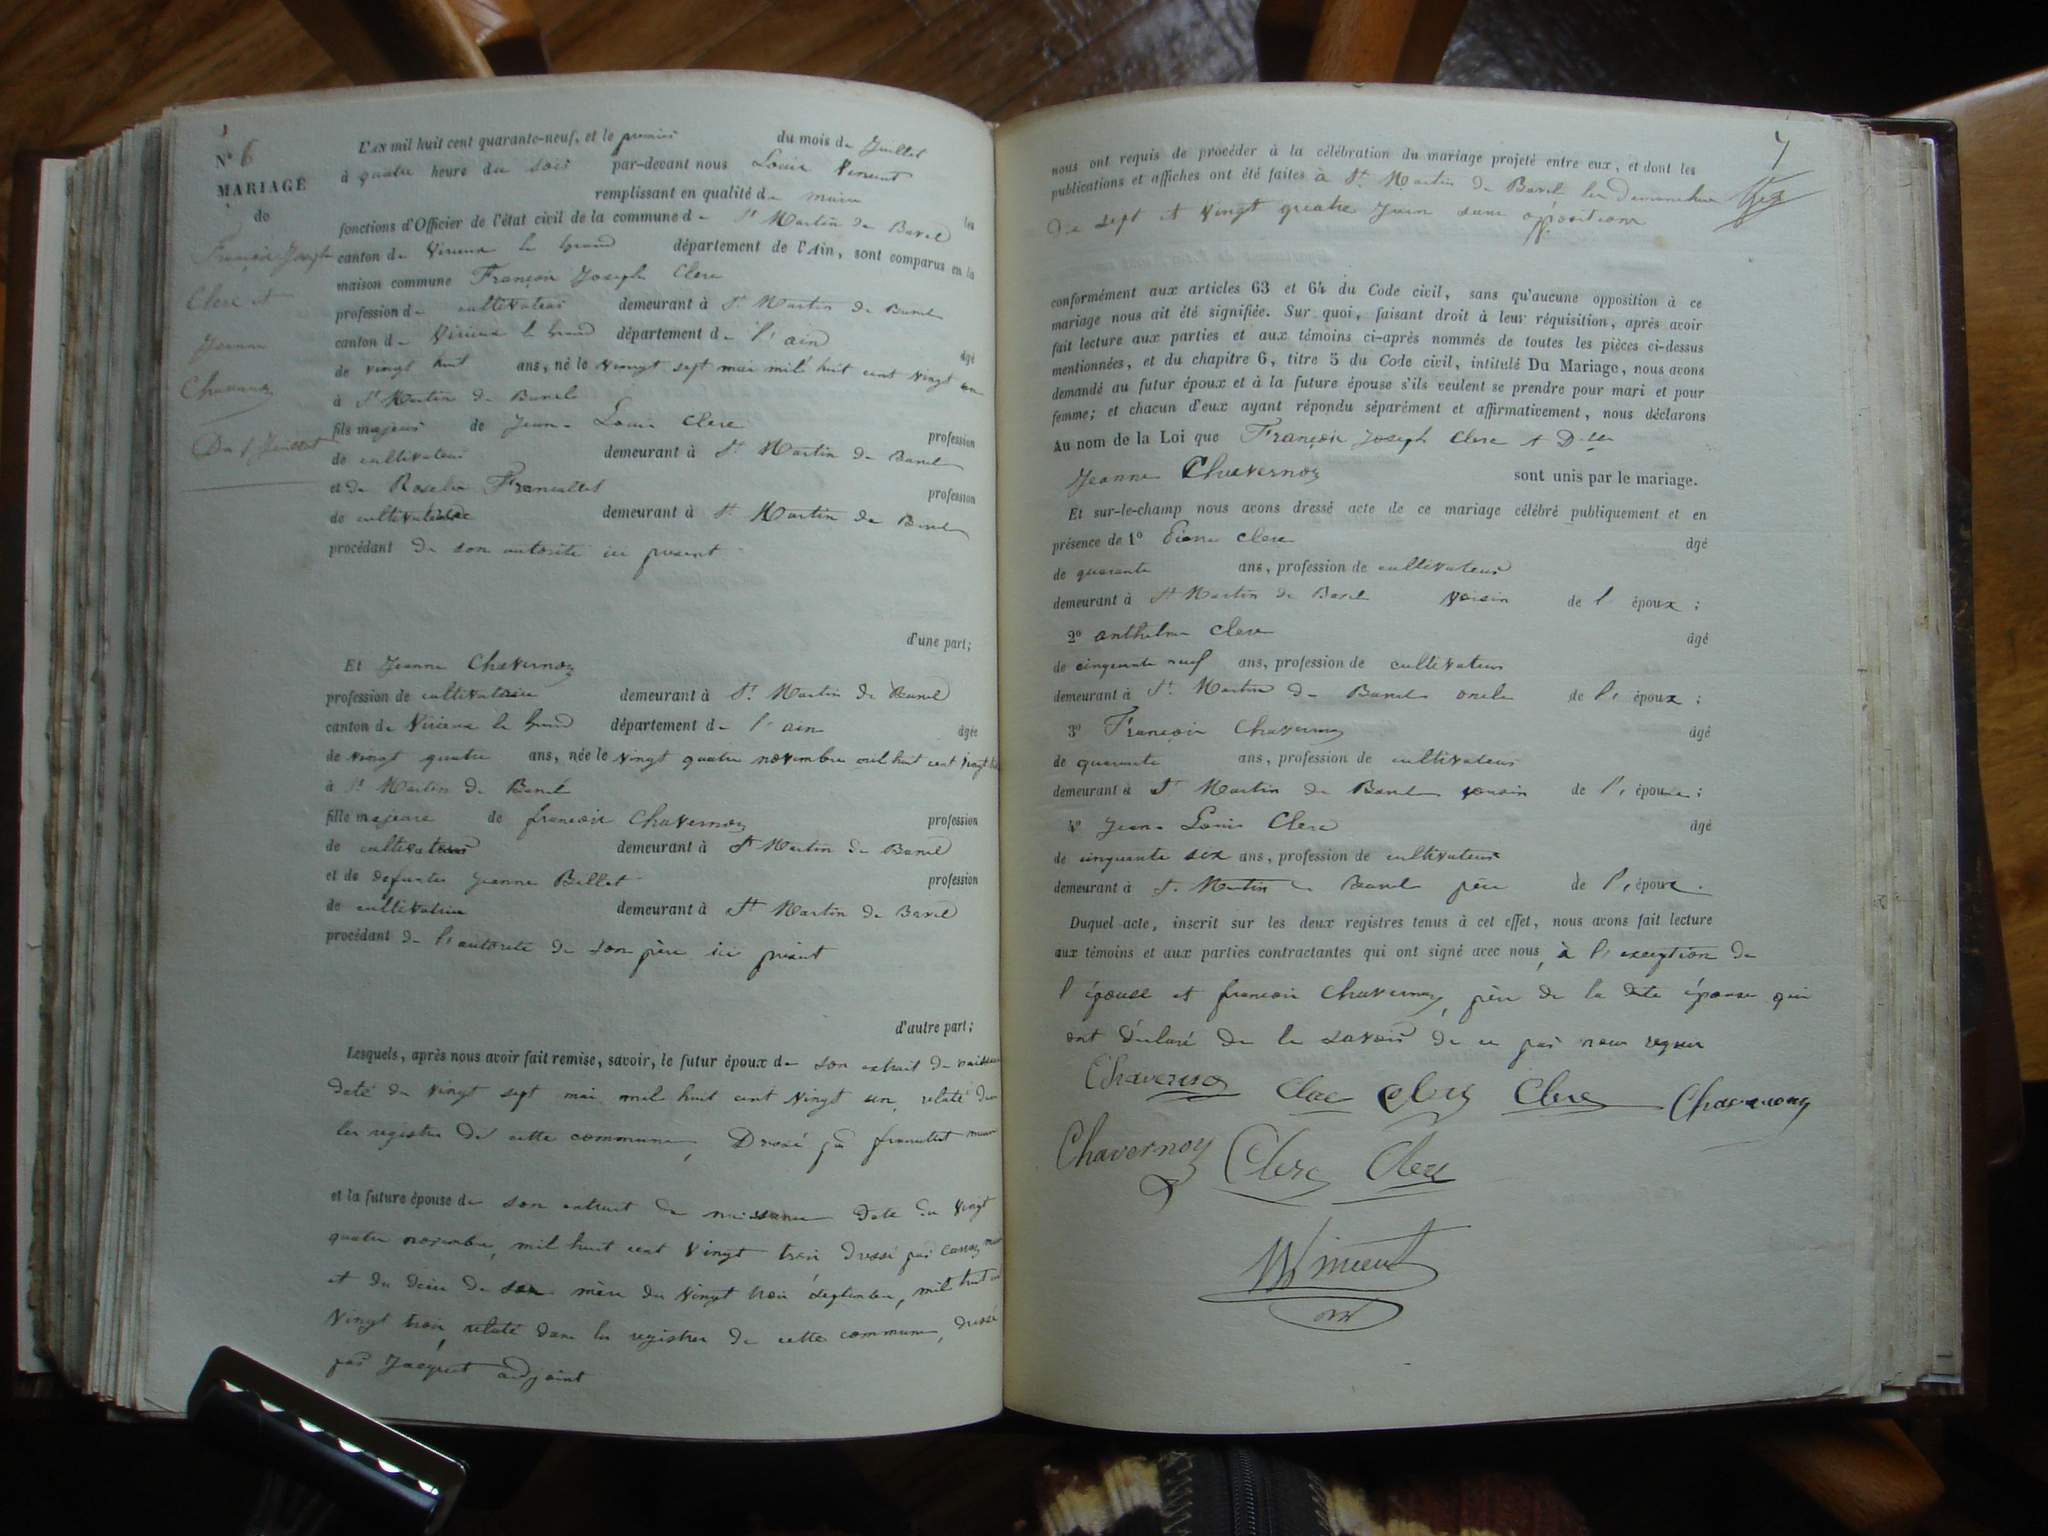 N° 6
MARIAGE
de
François Joseph
Clerc et
Jeanne
Chavernoz
Du 1er Juillet
L'AN mil huit cent quarante-neuf, et le premier du mois de Juillet
à quatre heure du soir par-devant nous Louis Vincent
remplissant en qualité de maire les
fonctions d'Officier de l'état civil de la commune de St Martin de Bavel
canton de Virieux le Grand département de l'Ain, sont comparus en la
maison commune François Joseph Clerc
profession de cultivateur demeurant à St Martin de Bavel
canton de Virieux le Grand département de l'ain âgé
de vingt huit ans, né le vingt sept mai mil huit cent vingt un
à St Martin de Bavel
fils majeur de Jean Louis Clerc profession
de cultivateur demeurant à St Martin de Bavel
et de Roselie Francillet profession
de cultivatrice demeurant à St Martin de Bavel
procédant de son autorité ici présent
d'une part;
Et Jeanne Chavernoz
profession de cultivatrice demeurant à St Martin de Bavel
canton de Virieux le Grand département de l'ain âgée
de vingt quatre ans, née le vingt quatre novembre mil huit cent vingt
à St Martin de Bavel
fille majeure de françois Chavernoz profession
de cultivateur demeurant à St Martin de Bavel
et de defuntes Jeanne Billet profession
de cultivatrice demeurant à St Martin de Bavel
procédant de l'autorité de son père ici présent
d'autre part;
Lesquels, après nous avoir fait remise, savoir, le futur époux de son extrait de naissance
daté du vingt sept mai mil huit cent vingt un, relaté dans
les registres de cette commune, Dressé par francillet maire
et la future épouse de son extrait de naissance daté du vingt
quatre novembre, mil huit cent vingt trois dressé par
et du décès de son mère du vingt trois septembre, mil huit cent
vingt trois, relaté dans les registres de cette commune, dressé
par Jacquet adjoint
7
nous ont requis de procéder à la célébration du mariage projeté entre eux, et dont les
publications et affiches ont été faites à St Martin de Bavel les Dimanches
dix sept et vingt quatre Juin sans opposition
conformément aux articles 63 et 64 du Code civil, sans qu'aucune opposition à ce
mariage nous ait été signifiée. Sur quoi, faisant droit à leur réquisition, après avoir
fait lecture aux parties et aux témoins ci-après nommés de toutes les pièces ci-dessus
mentionnées, et du chapitre 6, titre 5 du Code civil, intitulé Du Mariage, nous avons
demandé au futur époux et à la future épouse s'ils veulent se prendre pour mari et pour
femme; et chacun d'eux ayant répondu séparément et affirmativement, nous déclarons
Au nom de la Loi que François Joseph Clerc et Dlle
Jeanne Chavernoz sont unis par le mariage.
Et sur-le-champ nous avons dressé acte de ce mariage célébré publiquement et en
présence de 1° Pierre Clerc âgé
de quarante ans, profession de cultivateur
demeurant à St Martin de Bavel voisin de l' époux ;
2° anthelme Clerc âgé
de cinquante neuf ans, profession de cultivateur
demeurant à St Martin de Bavel oncle de l' époux ;
3° François Chavernoz âgé
de quarante ans, profession de cultivateur
demeurant à St Martin de Bavel cousin de l' épouse ;
4° Jean Louis Clerc âgé
de cinquante six ans, profession de cultivateur
demeurant à St Martin de Bavel père de l' époux .
Duquel acte, inscrit sur les deux registres tenus à cet effet, nous avons fait lecture
aux témoins et aux parties contractantes qui ont signé avec nous, à l'exception de
l'épouse et françois Chavernoz, père de la dite épouse qui
ont déclaré de le savoir de ce par nous requis
Chavernoz Clerc Clerc Clerc Chavernoz
Chavernoy Clerc Clerc
Vincent